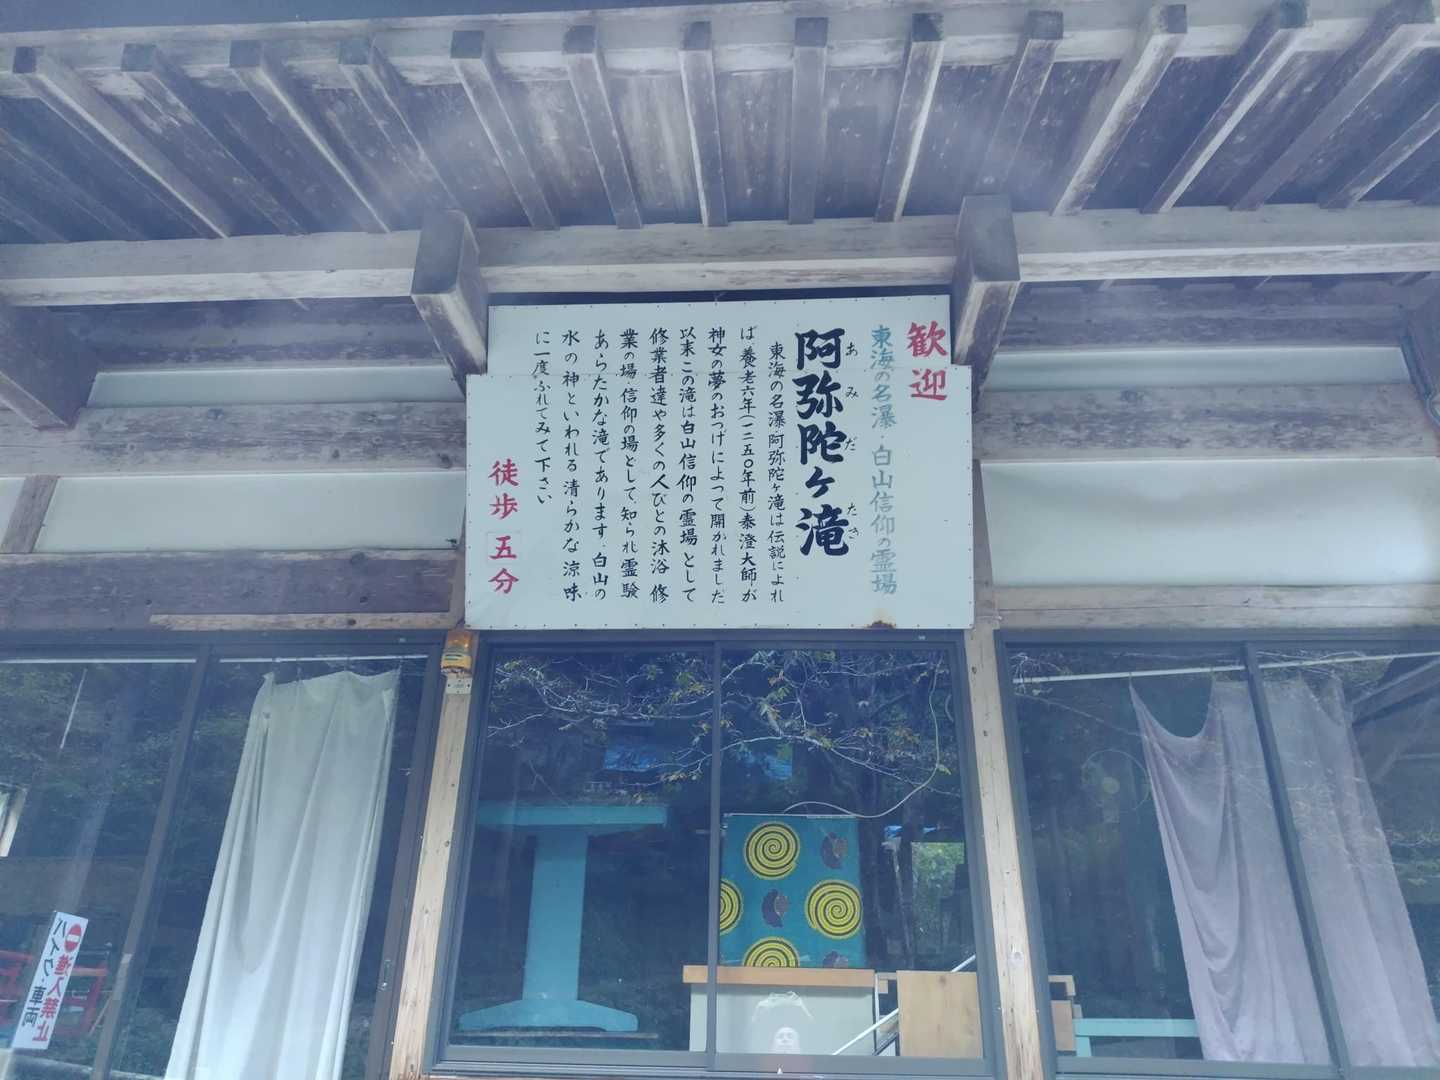 歓迎
東海の名瀑・白山信仰の霊場
あみだ たき
阿弥陀ヶ滝
東海の名瀑・阿弥陀ヶ滝は伝説によれ
ば 養老六年(一二五〇年前)泰澄大師が
神女の夢のおつげによって開かれました
以来この滝は白山信仰の霊場として
修業者達や多くの人びとの沐浴 修
業の場・信仰の場として、知られ霊験
あらたかな滝であります。白山の
水の神といわれる清らかな涼味
に一度ふれてみて下さい
徒歩 五分
進入禁止
バイク・車両